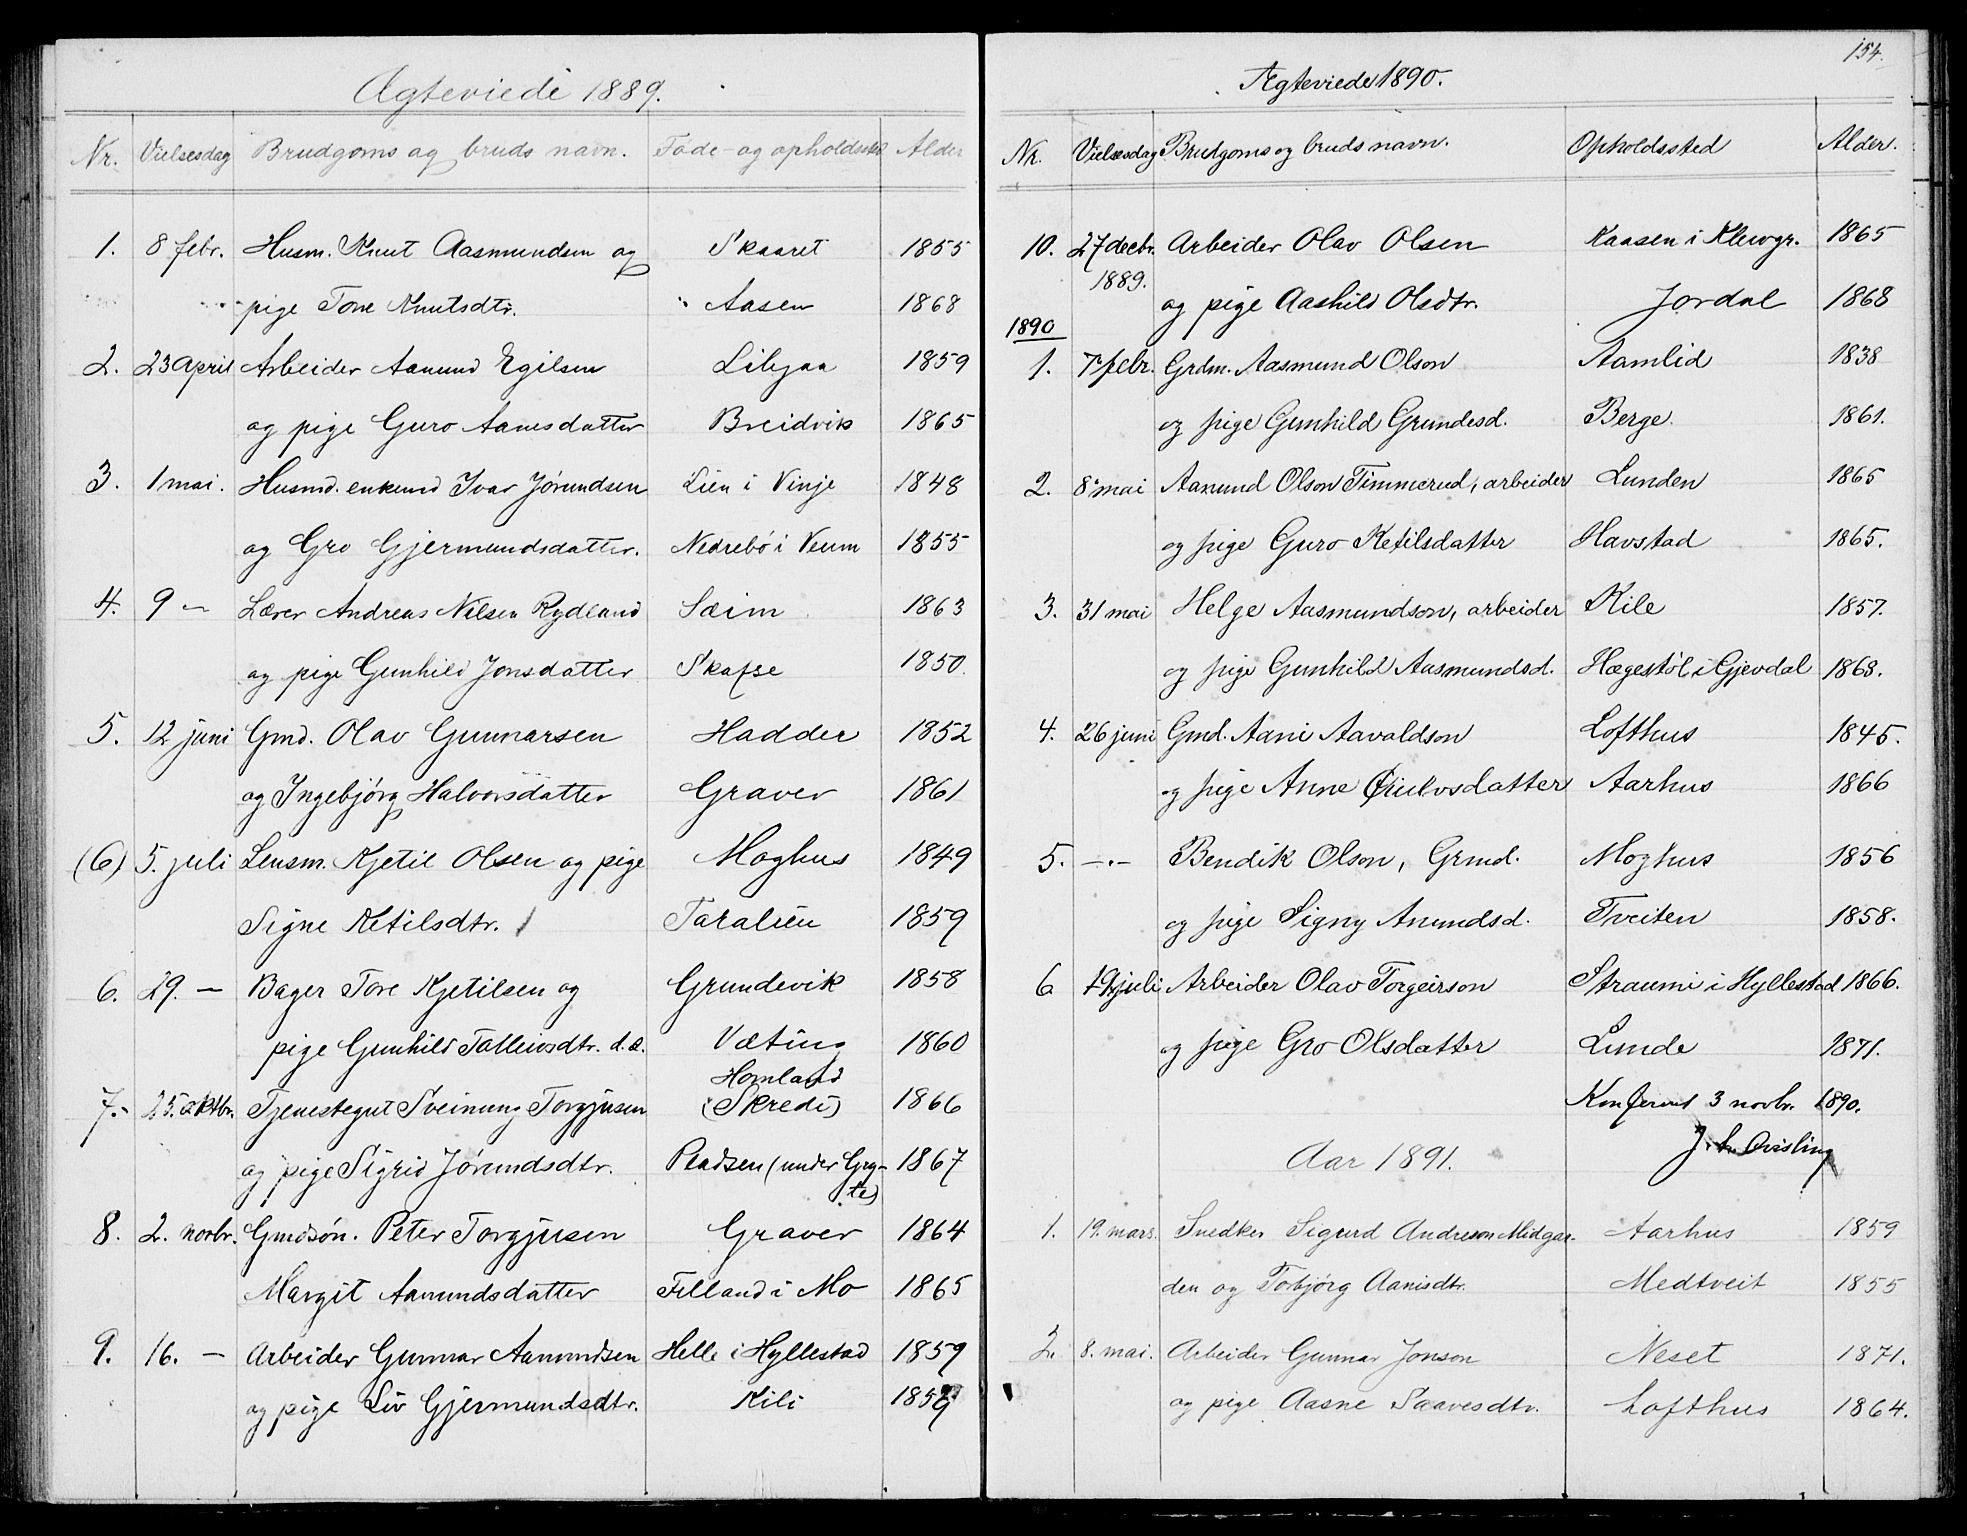 Ægteviede 1889.
Nr. Vielsesdag Brudgoms og bruds navn. Føde- og opholdsted Alder
1. 8 febr. Husm. Knut Aasmundsen og Skaaret 1855
pige Tone Knutsdtr. Aasen 1868
2. 23 April Arbeider Aanund Egilsen Libygaa 1859
og pige Guro Aanesdatter Breidvik 1865
3. 1 mai. Husmd. enkemd Ivar Jørundsen Lien i Vinje 1848
og Gro Gjermundsdatter. Nedrebö i Veum 1855
4. 9 — Lærer Andreas Nilsen Rydland Sæim 1863
og pige Gunhild Jonsdatter Skafse 1850
5. 12 juni Gmd. Olav Gunnarsen Hadder 1852
og Ingebjørg Halvorsdatter Graver 1861
(6) 5. juli Lensm. Kjetil Olsen og pige Moghus 1849
Signe Ketilsdtr. Taralien 1859
6. 29. — Bager Tore Kjetilsen og Grundevik 1858
pige Gunhild Talleivsdtr. d.æ. Væting 1860
Homland
7. 25. oktbr. Tjenestegut Sveinung Torgjusen (Skredi) 1866
og pige Sigrid Jørundsdtr. Pladsen (under Gryte) 1867
8. 2. novbr. Gmdsøn. Peter Torgjusen Graver 1864
Margit Aanundsdatter Felland i Mo 1865
9. 16. — Arbeider Gunnar Aanundsen Helle i Hyllestad 1859
og pige Liv Gjermundsdtr. Kili 1859
154.
Ægteviede 1890.
Nr. Vielsesdag Brudgoms og bruds navn. Opholdssted Alder.
10. 27 decbr. Arbeider Olav Olsen Kaasen i Klevgr. 1865
1889. og pige Aashild Olsdtr. Jordal 1868
1890
1. 7de febr. Grdm. Aasmund Olson Aamlid 1838
og pige Gunhild Grundesd. Berge. 1861.
2. 8. mai Aanund Olson Timmerud, arbeider Lunden 1865
og pige Guro Ketilsdatter Havstad 1865.
3. 31 mai Helge Aasmundson, arbeider Kile 1857.
og pige Gunhild Aasmundsd. Hægestöl i Gjevdal 1868.
4. 26 juni Gmd. Aani Aavaldson Lofthus 1845.
og pige Anne Øiulvsdatter Aarhus 1866
5. —"— Bendik Olson, Grmd. Moghus 1856
og pige Signy Anundsd. Tveiten 1858.
6 19 juli Arbeider Olav Torgeirson Straumi i Hyllestad 1866.
og pige Gro Olsdatter Lunde 1871.
Konferert 3 novbr. 1890.
J. L. Qvisling
Aar 1891.
1. 19. mars. Snedker Sigurd Andreson Midgar- Aarhus 1859
den og Tobjørg Aanisdtr. Medtveit 1855
2. 8. mai. Arbeider Gunnar Jonson Neset 1871.
og pige Aasne Saavesdtr. Lofthus 1864.